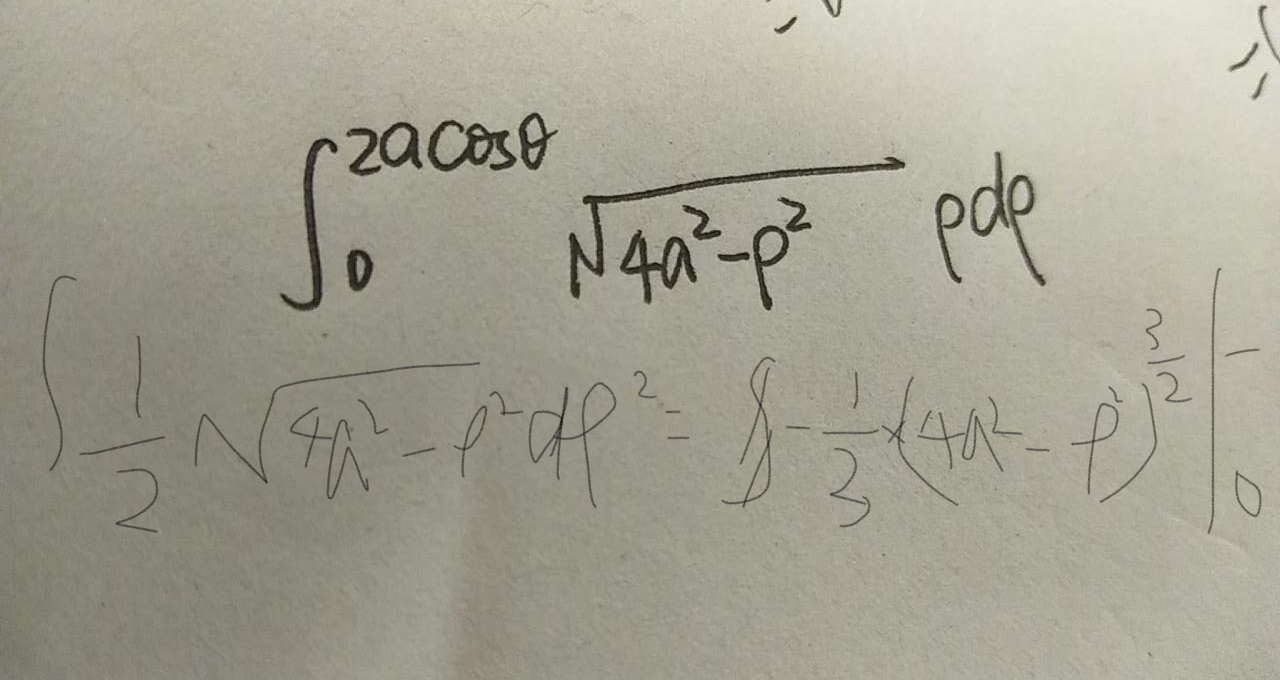 ∫₀^{2acosθ} √(4a²-ρ²) ρdρ
∫ 1/2 √(4a²-ρ²) dρ² = -1/3 × (4a²-ρ²)^{3/2} |₀